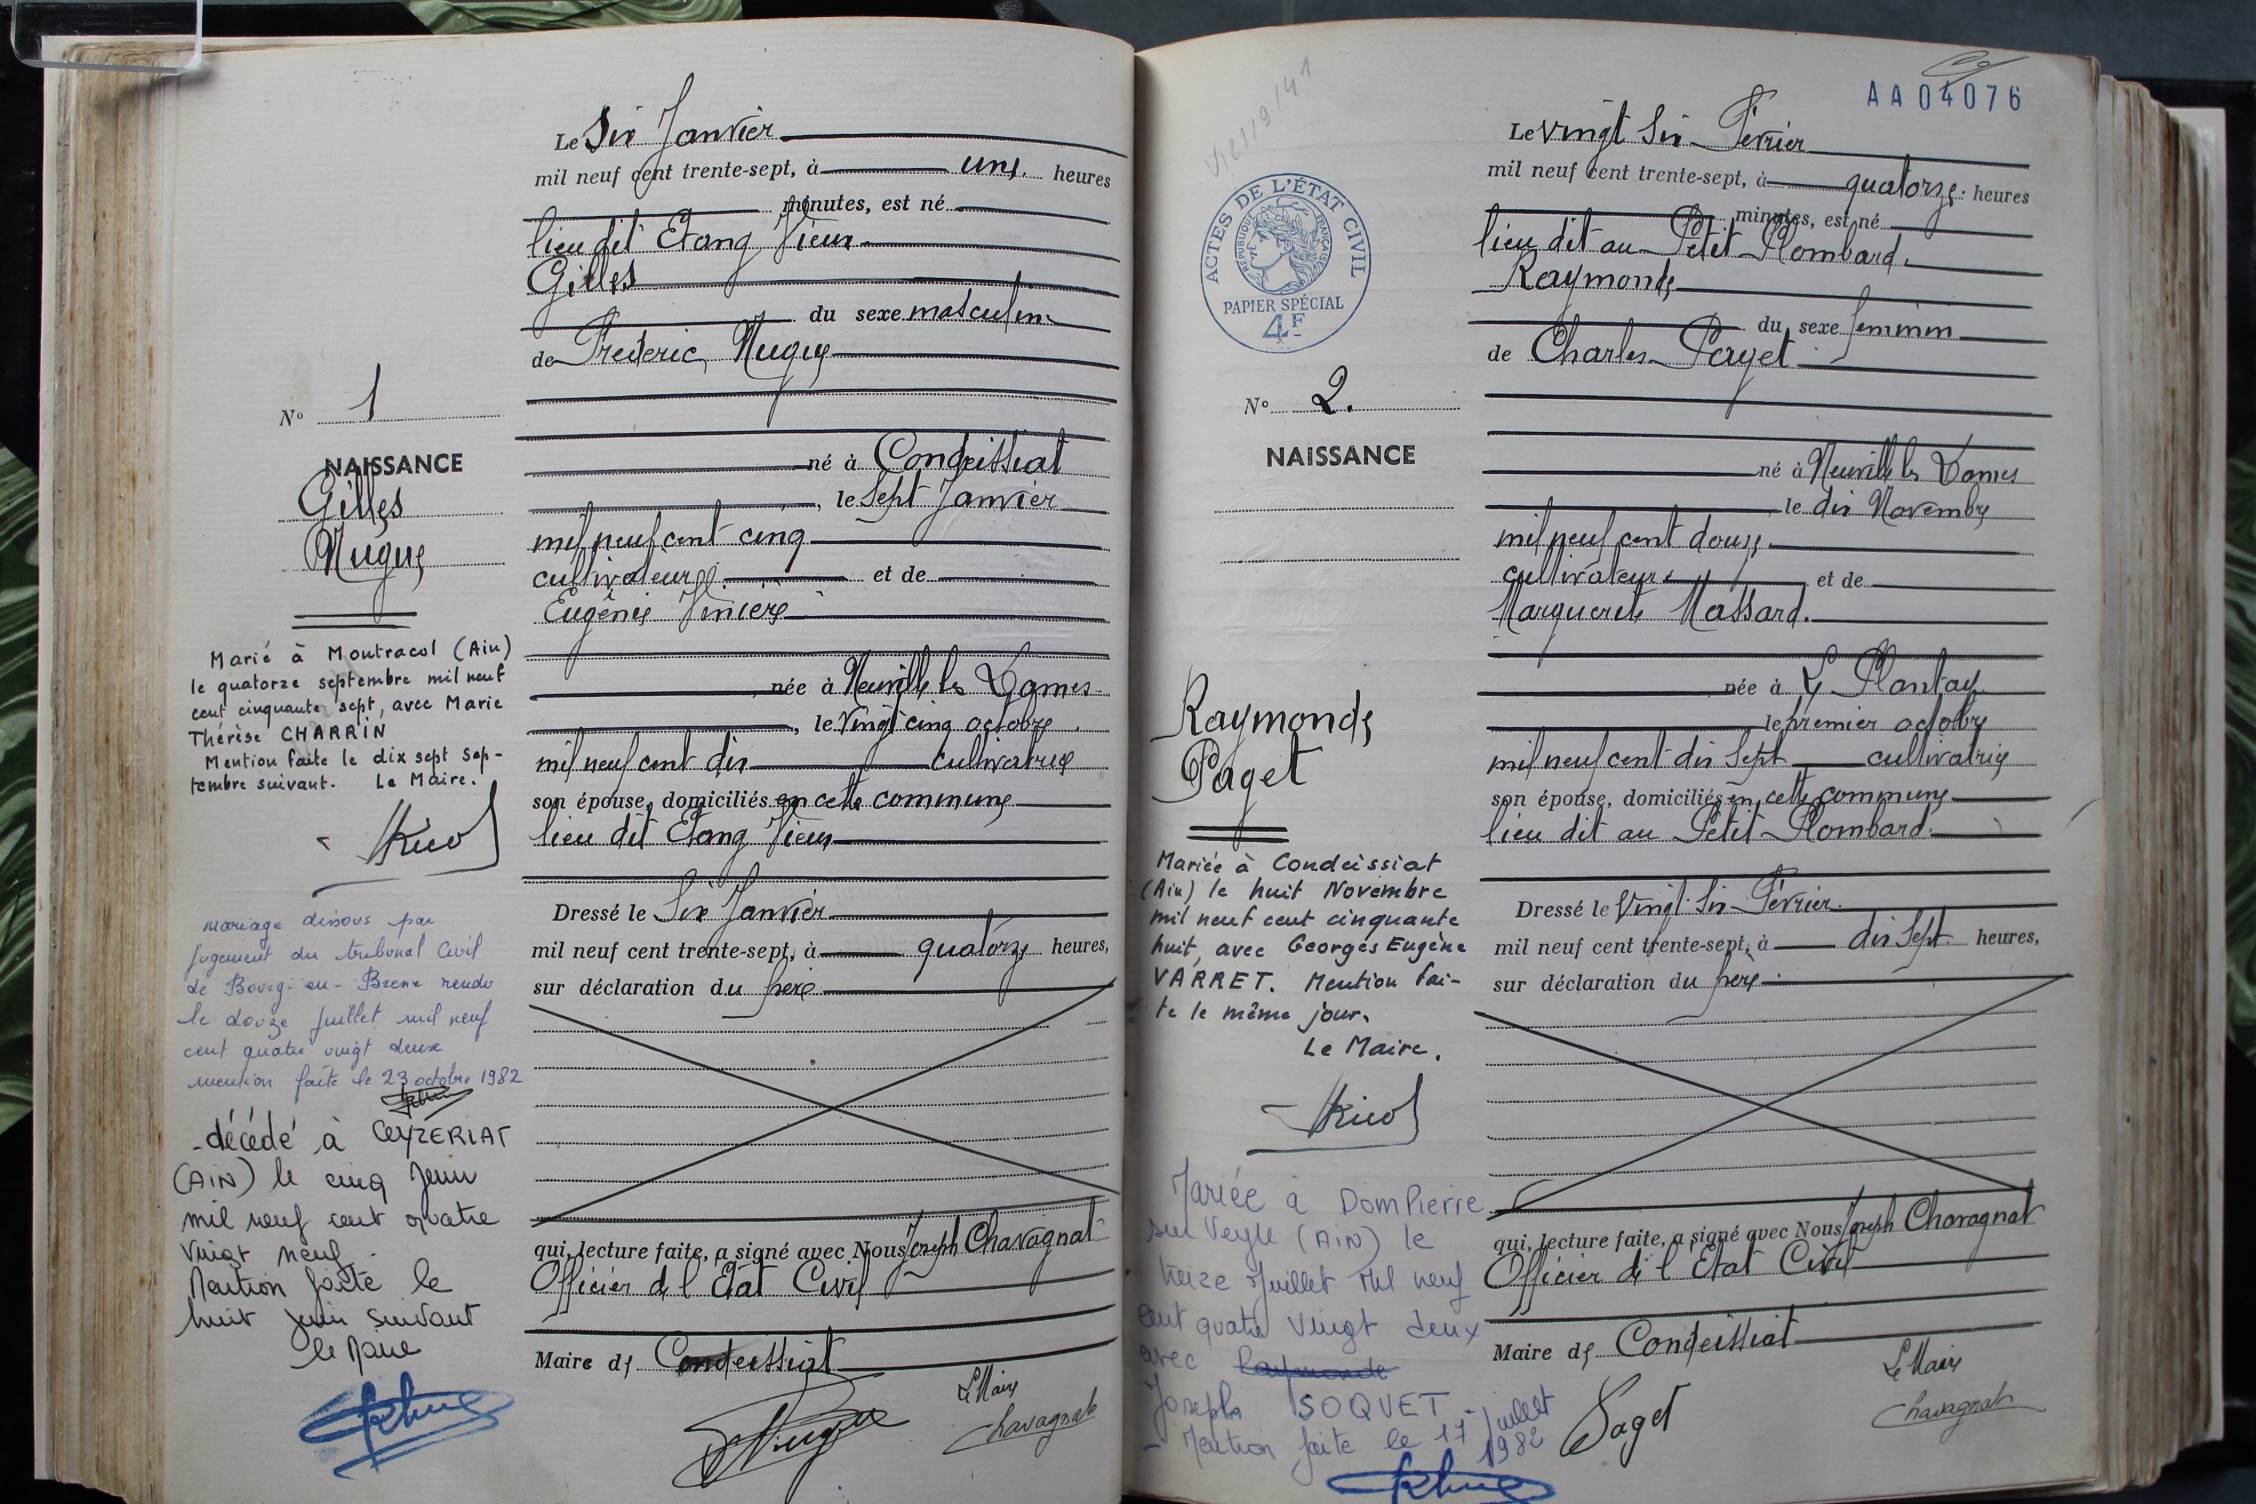 Le Six Janvier
mil neuf cent trente-sept, à une heures
minutes, est né
lieu dit Etang Vieux
Gilles
du sexe masculin
de Frédéric Nugue
né à Condeissiat
, le Sept Janvier
mil neuf cent cinq
cultivateur et de
Eugénie
née à Neuville les Dames
, le Vingt cinq octobre
mil neuf cent dix cultivatrice
son épouse, domiciliés en cette commune
lieu dit Etang Vieux
Dressé le Six Janvier
mil neuf cent trente-sept, à quatorze heures,
sur déclaration du père
qui, lecture faite, a signé avec Nous Joseph Chavagnat
Officier de l'Etat Civil
Maire de Condeissiat
Le Maire
Chavagnat
Nº 1
NAISSANCE
Gilles
Nugue
Marié à Montracol (Ain)
le quatorze septembre mil neuf
cent cinquante sept, avec Marie
Thérèse CHARRIN
Mention faite le dix sept sep-
tembre suivant. Le Maire.
mariage dissous par
jugement du tribunal Civil
de Bourg-en-Bresse rendu
le douze juillet mil neuf
cent quatre vingt deux
mention faite le 23 octobre 1982
- décédé à CEYZERIAT
(AIN) le cinq Juin
mil neuf cent quatre
vingt neuf.
Mention faite le
huit juin suivant
le Maire
AA04076
ACTES DE L'ÉTAT CIVIL
RÉPUBLIQUE FRANÇAISE
PAPIER SPÉCIAL
4F
Le Vingt Six Février
mil neuf cent trente-sept, à quatorze heures
minutes, est né
lieu dit au Petit Plombard.
Raymonde
du sexe féminin
de Charles Paget
né à Neuville les Dames
le dix Novembre
mil neuf cent douze
cultivateur et de
Marguerite Massard.
née à Le Plantay
le premier octobre
mil neuf cent dix Sept cultivatrice
son épouse, domiciliés en cette commune
lieu dit au Petit Plombard
Dressé le Vingt Six Février
mil neuf cent trente-sept, à dix Sept heures,
sur déclaration du père
qui, lecture faite, a signé avec Nous Joseph Chavagnat
Officier de l'Etat Civil
Maire de Condeissiat
Le Maire
Paget
Chavagnat
Nº 2.
NAISSANCE
Raymonde
Paget
Mariée à Condeissiat
(Ain) le huit Novembre
mil neuf cent cinquante
huit, avec Georges Eugène
VARRET. Mention fai-
te le même jour.
Le Maire.
Mariée à DomPierre
sur Veyle (AIN) le
treize Juillet Mil neuf
cent quatre Vingt deux
avec Raymonde
Joseph SOQUET.
- Mention faite le 17 juillet
1982